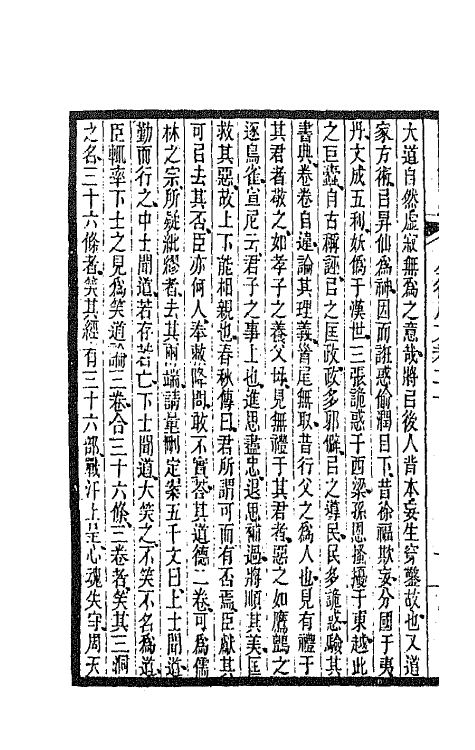 大道自然虛寂無為之意哉將㠯後人背本妄生穿鑿故也又道
家方術㠯昇仙為神因而誑惑偷潤目下昔徐福欺妄分國于夷
丹文成五利妖偽于漢世三張詭惑于西梁孫恩搔擾于東越此
之巨蠹自古稱誣㠯之匡政政多邪僻㠯之導民民多詭惑驗其
書典卷卷自違論其理義首尾無取昔行父之為人也見有禮于
其君者敬之如孝子之養父母見無禮于其君者惡之如鷹鸇之
逐鳥雀宣尼云君子之事上也進思盡忠退思補過將順其美匡
救其惡故上下能相親也春秋傳曰君所謂可而有否焉臣獻其
可㠯去其否臣亦何人奉敕降問敢不實荅其道德二卷可為儒
林之宗所疑紕繆者去其兩端請量刪定案五千文曰上士聞道
勤而行之中士聞道若存若亡下士聞道大笑之不笑不名為道
臣輒率下士之見為笑道論三卷合三十六條三卷者笑其三洞
之名三十六條者笑其經有三十六部戰汗上呈心魂失守周天